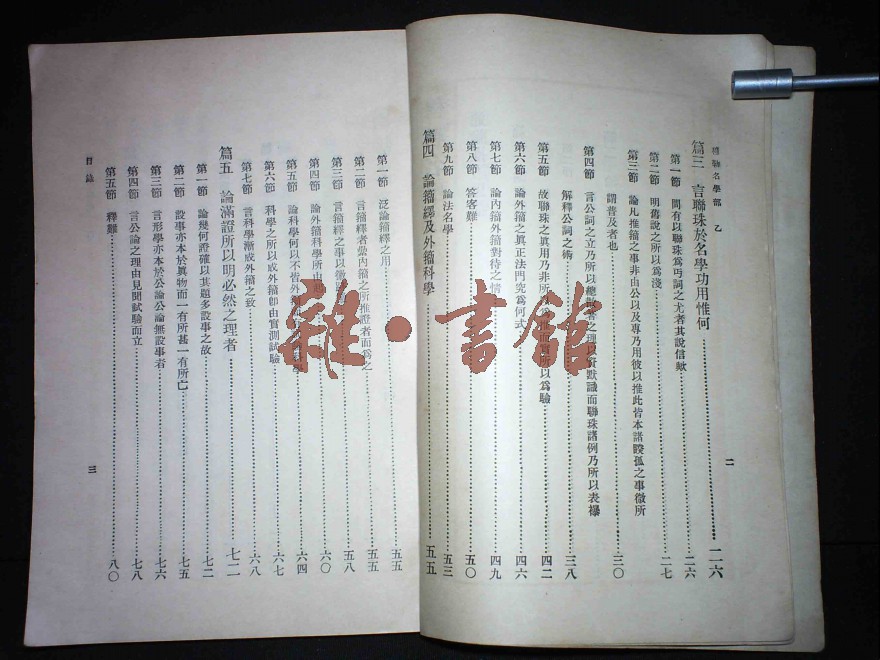 名學部 乙
二
篇三 言聯珠於名學功用惟何 二六
第一節 問有以聯珠爲丐詞之尤者其說信歟 二六
第二節 明舊說之所以爲淺 二七
第三節 論凡推籀之事非由公以及專乃用彼以推此皆本諸睽孤之事徵所
謂普及者也 三〇
第四節 言公詞之立乃所以總 之理以 默識而聯珠諸例乃所以表襮
解釋公詞之術 三八
第五節 故聯珠之眞用乃非所 爲推而實所以爲驗 四二
第六節 論外籀之眞正法門究爲何式 四六
第七節 論內籀外籀對待之情 四九
第八節 答客難 五〇
第九節 論法名學 五三
篇四 論籀繹及外籀科學 五五
第一節 泛論籀繹之用 五五
第二節 言籀繹者彙內籀之所推證者而爲之 五五
第三節 言籀繹之事以徵 五八
第四節 論外籀科學所由 六〇
第五節 論科學何以不皆外籀 學 六四
第六節 科學之所以成外籀卽由實測試驗 六七
第七節 言科學漸成外籀之致 六八
篇五 論滿證所以明必然之理者 七二
第一節 論幾何證確以其題多設事之故 七二
第二節 設事亦本於眞物而一有所甚一有所亡 七五
第三節 言形學亦本於公論公論無設事者 七六
第四節 言公論之理由見聞試驗而立 七八
第五節 釋難 八〇
目錄
三
雜·書館